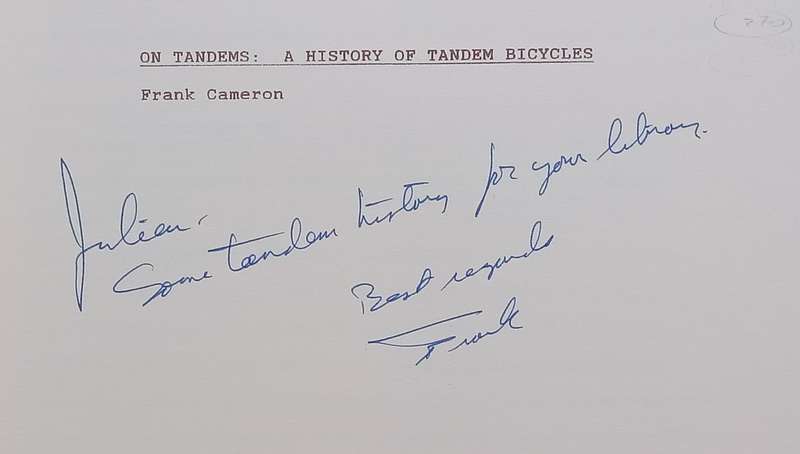 ON TANDEMS: A HISTORY OF TANDEM BICYCLES
Frank Cameron
Julien,
Some tandem history for your library.
Best regards
Frank